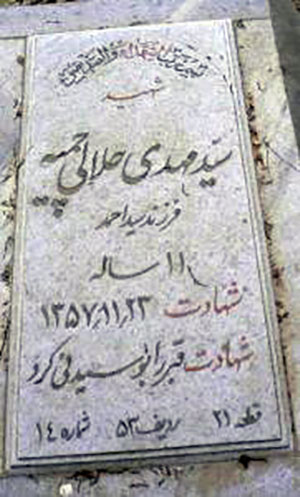 شهید
سید مهدی جلالی
فرزند سید احمد
۱۱ ساله
شهادت ۱۳۵۷٫۱۱٫۲۳
شهادت قبر را بوسیدنی کرد
قطعه ۲۱ ردیف ۵۳ شماره ۱۴